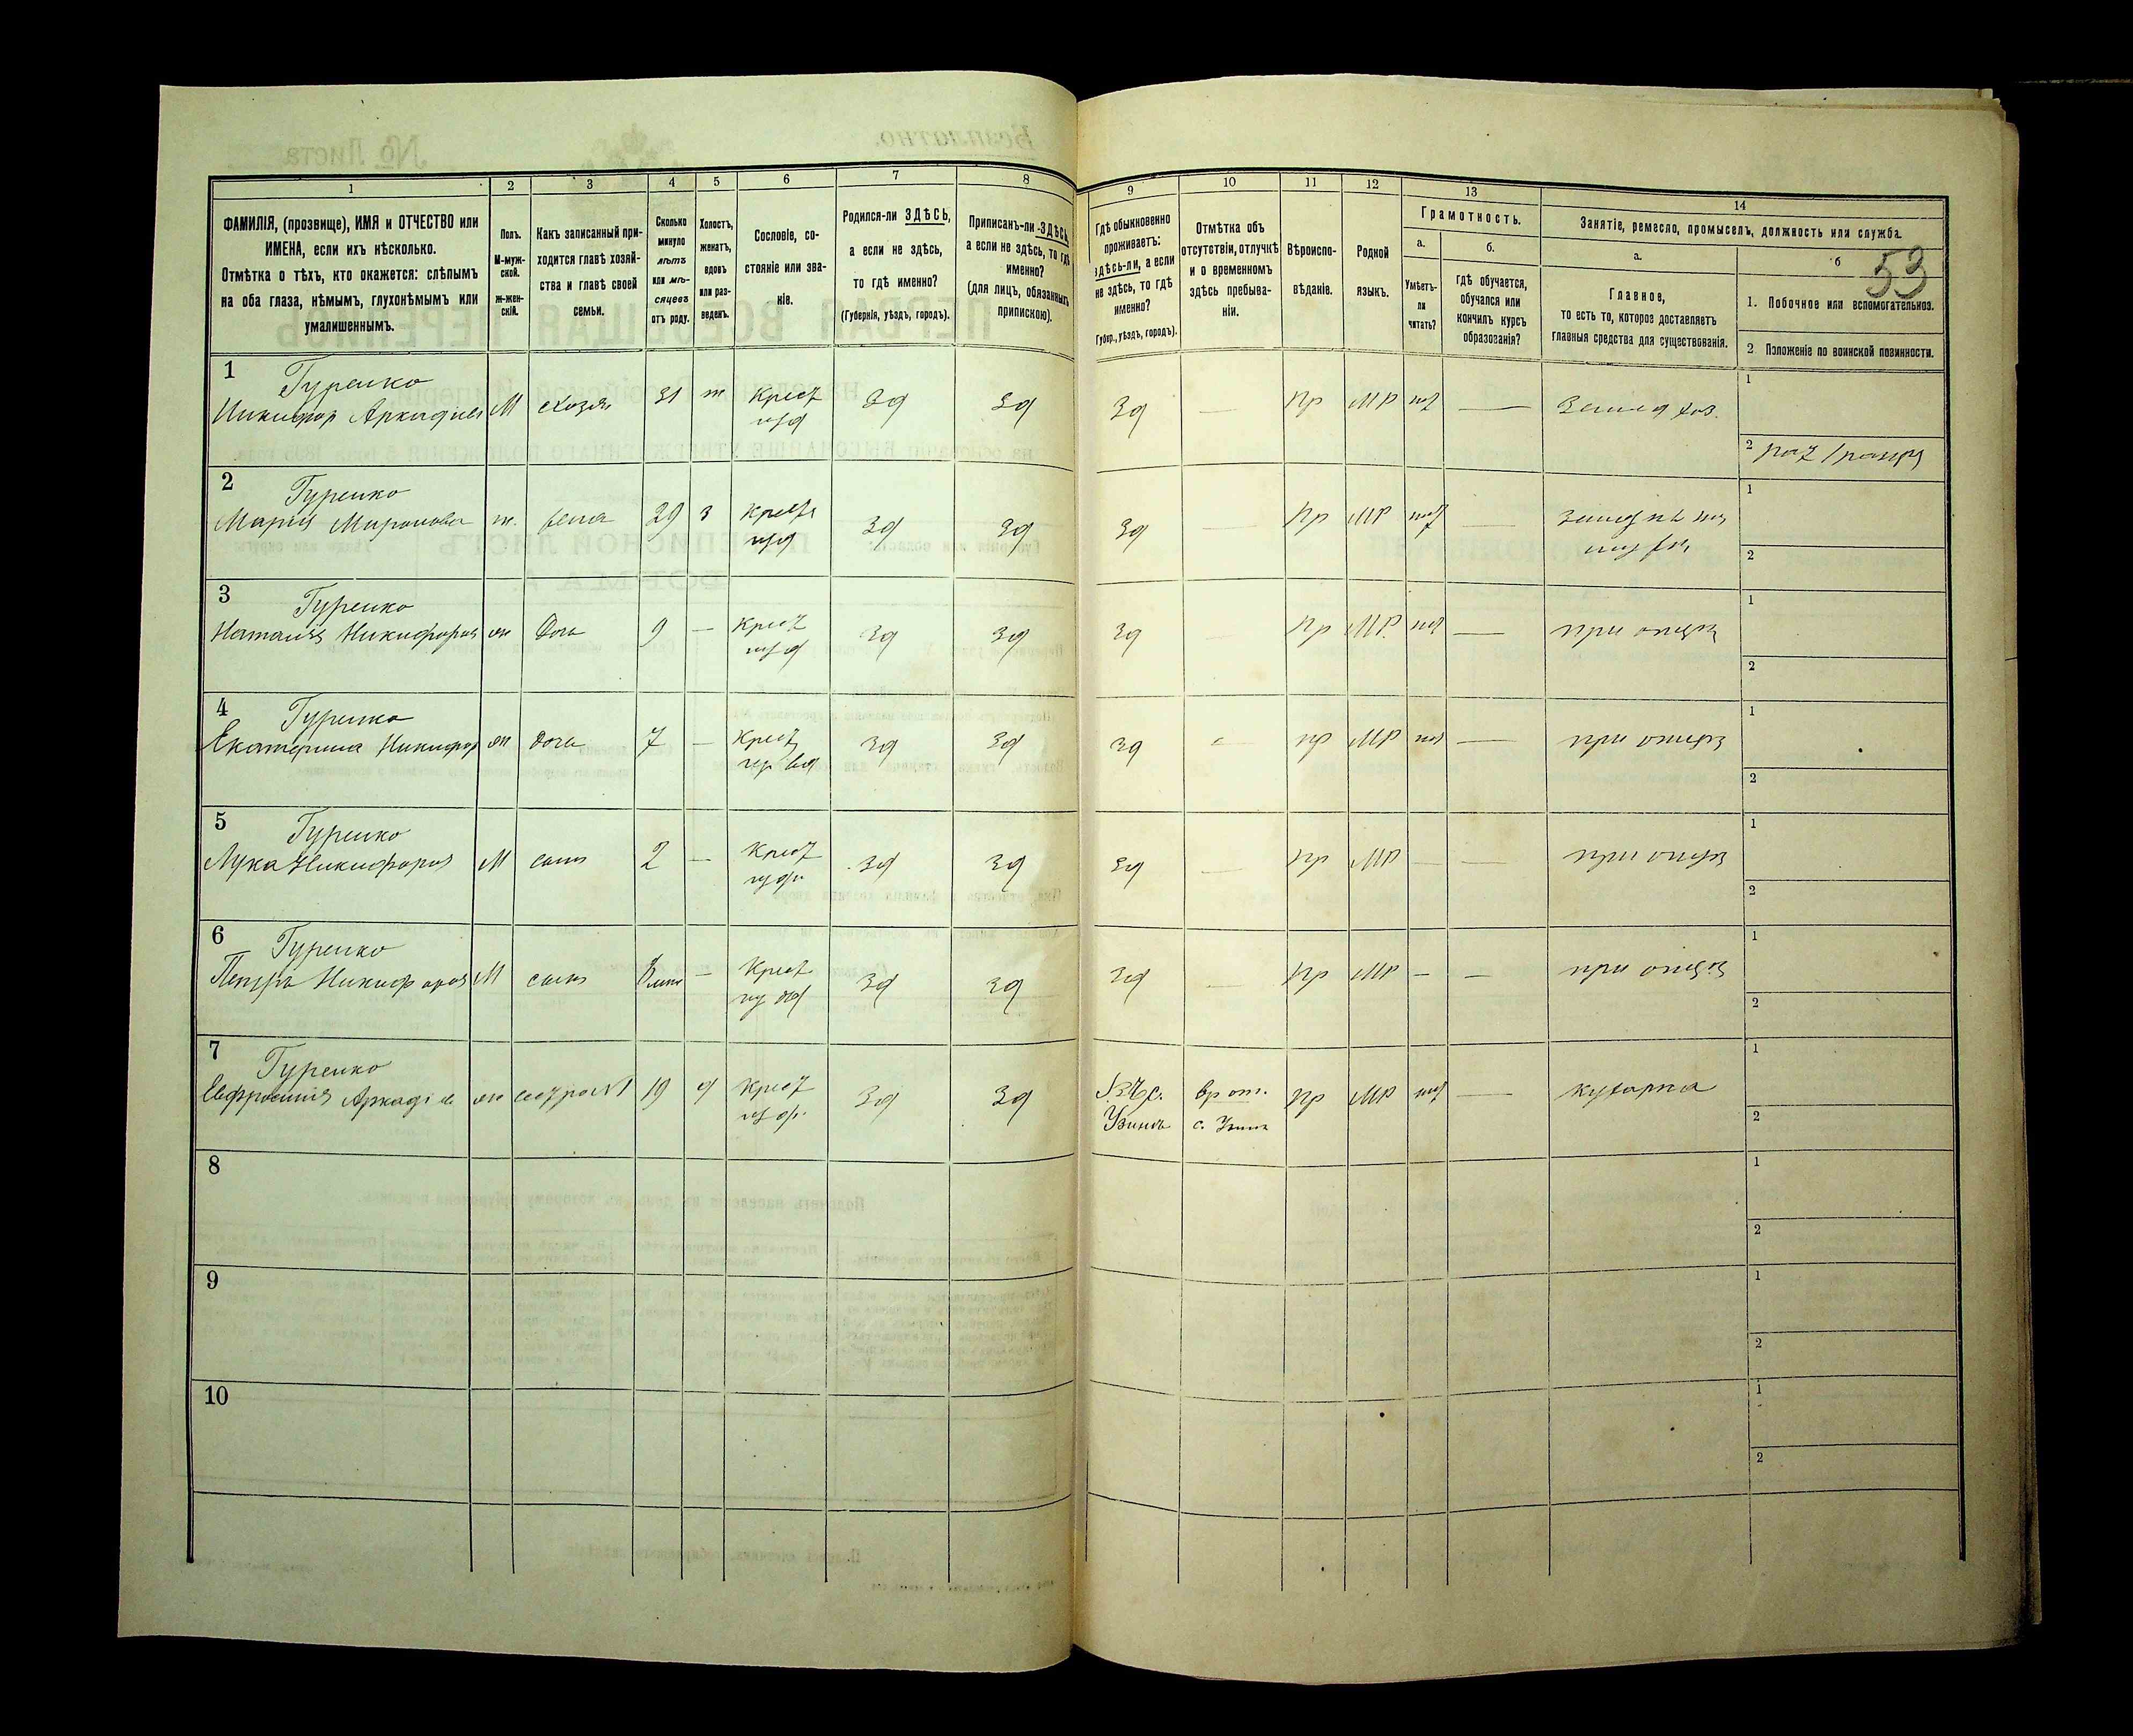 1
2
3
4
5
6
7
8
ФАМИЛІЯ, (прозвище), ИМЯ и ОТЧЕСТВО или
ИМЕНА, если ихъ нѣсколько.
Отмѣтка о тѣхъ, кто окажется: слѣпымъ
на оба глаза, нѣмымъ, глухонѣмымъ или
умалишеннымъ.
Полъ.
М-муж-
ской.
Ж-жен-
скій.
Какъ записанный при-
ходится главѣ хозяй-
ства и главѣ своей
семьи.
Сколько
минуло
лѣтъ
или мѣ-
сяцевъ
отъ роду.
Холостъ,
женатъ,
вдовъ
или раз-
веденъ.
Сословіе, со-
стояніе или зва-
ніе.
Родился-ли ЗДѢСЬ,
а если не здѣсь,
то гдѣ именно?
(Губернія, уѣздъ, городъ).
Приписанъ-ли ЗДѢСЬ,
а если не здѣсь, то гдѣ
именно?
(для лицъ, обязанныхъ
припискою).
9
10
11
12
13
14
Гдѣ обыкновенно
проживаетъ:
здѣсь-ли, а если
не здѣсь, то гдѣ
именно?
Губер., уѣздъ, городъ).
Отмѣтка объ
отсутствіи, отлучкѣ
и о временномъ
здѣсь пребыва-
ніи.
Вѣроиспо-
вѣданіе.
Родной
языкъ.
Грамотность.
а.
Умѣетъ-
ли
читать?
б.
Гдѣ обучается,
обучался или
кончилъ курсъ
образованія?
Занятіе, ремесло, промыселъ, должность или служба.
а.
Главное,
то есть то, которое доставляетъ
главныя средства для существованія.
б
53
1. Побочное или вспомогательное.
2 Положеніе по воинской повинности.
1 Гуренко
Никифор Аркадиев М хозяин 31 ж Крест
зд зд зд — пр МР нет — Землед хоз.
1
2
2 Гуренко
Мария Миронова ж. жена 29 з Крест
зд зд зд — пр МР нет —
1
2
3 Гуренко
Наталия Никифоров ж Дочь 9 — Крест
зд зд зд пр МР нет — при отце
1
2
4 Гуренко
Екатерина Никифор ж дочь 7 — Крест
зд зд зд пр МР нет — при отце
1
2
5 Гуренко
Лука Никифоров М сын 2 — Крест
зд зд зд — пр МР — — при отце
1
2
6 Гуренко
Петръ Никифоров М сын — Крест
зд зд зд — пр МР — — при отце
1
2
7 Гуренко
Евфросиния Аркадіев ж сестра №1 19 д Крест
зд зд вр от. пр МР нет — кухарка
с.
1
2
8
1
2
9
1
2
10
1
2